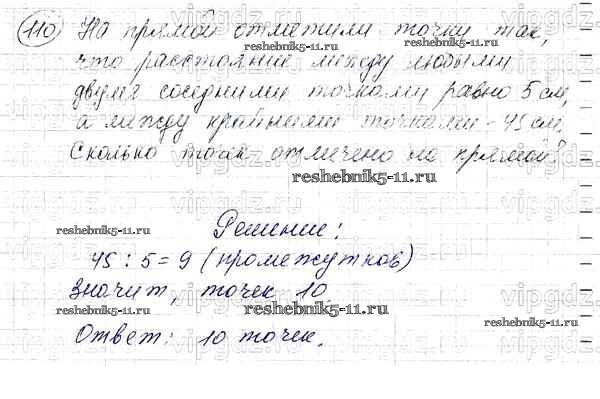 110 На прямой отметили точки так,
что расстояние между любыми
двумя соседними точками равно 5 см,
а между крайними точками - 45 см.
Сколько точек отмечено на прямой?
Решение:
45 : 5 = 9 (промежутков)
Значит, точек 10.
Ответ: 10 точек.
reshebnik5-11.ru
reshebnik5-11.ru
reshebnik5-11.ru
reshebnik5-11.ru
reshebnik5-11.ru
reshebnik5-11.ru
vipgdz.ru